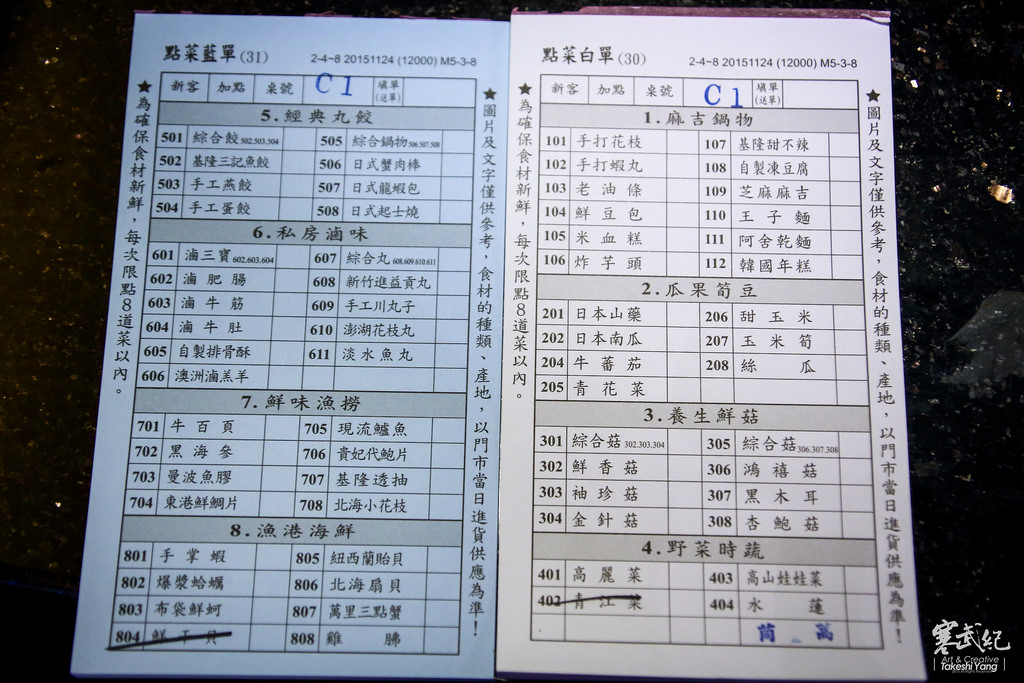 點菜藍單(31) 2-4~8 20151124 (12000) M5-3-8
新客 加點 桌號 C1 填單(送單)
★為確保食材新鮮，每次限點8道菜以內。
5.經典丸餃
501 綜合餃502.503.504 505 綜合鍋物506.507.508
502 基隆三記魚餃 506 日式蟹肉棒
503 手工燕餃 507 日式龍蝦包
504 手工蛋餃 508 日式起士燒
6.私房滷味
601 滷三寶602.603.604 607 綜合丸608.609.610.611
602 滷肥腸 608 新竹進益貢丸
603 滷牛筋 609 手工川丸子
604 滷牛肚 610 澎湖花枝丸
605 自製排骨酥 611 淡水魚丸
606 澳洲滷羔羊
7.鮮味漁撈
701 牛百頁 705 現流鱸魚
702 黑海參 706 貴妃代鮑片
703 曼波魚膠 707 基隆透抽
704 東港鮮鯛片 708 北海小花枝
8.漁港海鮮
801 手掌蝦 805 紐西蘭貽貝
802 爆漿蛤蠣 806 北海扇貝
803 布袋鮮蚵 807 萬里三點蟹
804 鮮干貝 808 雞腓
★圖片及文字僅供參考，食材的種類、產地，以門市當日進貨供應為準！
點菜白單(30) 2-4~8 20151124 (12000) M5-3-8
新客 加點 桌號 C1 填單(送單)
★為確保食材新鮮，每次限點8道菜以內。
1.麻吉鍋物
101 手打花枝 107 基隆甜不辣
102 手打蝦丸 108 自製凍豆腐
103 老油條 109 芝麻麻吉
104 鮮豆包 110 王子麵
105 米血糕 111 阿舍乾麵
106 炸芋頭 112 韓國年糕
2.瓜果筍豆
201 日本山藥 206 甜玉米
202 日本南瓜 207 玉米筍
204 牛蕃茄 208 絲瓜
205 青花菜
3.養生鮮菇
301 綜合菇302.303.304 305 綜合菇306.307.308
302 鮮香菇 306 鴻禧菇
303 袖珍菇 307 黑木耳
304 金針菇 308 杏鮑菇
4.野菜時蔬
401 高麗菜 403 高山娃娃菜
402 青江菜 404 水蓮
茼萬
★圖片及文字僅供參考，食材的種類、產地，以門市當日進貨供應為準！
寒武紀
Art & Creative
Takeshi Yang